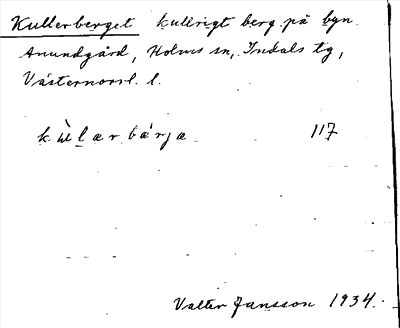 Kullerberget kullrigt berg på byn
Anundgård, Holms sn, Indals tg,
Västernorrl. l.
kùlarbárja 117
Valter Jansson 1934.